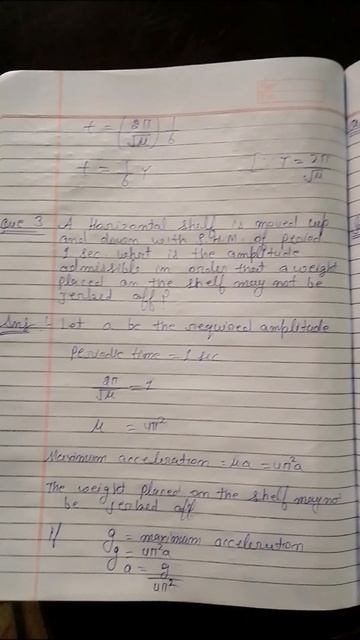 t = (2π/√μ) 1/6
t = 1/6 T [∵ T = 2π/√μ
Que 3 A Horizontal shelf is moved up
and down with S.H.M. of period
1 sec. what is the amplitude
admissible in order that a weight
placed on the shelf may not be
jerked off?
Ans :- Let a be the required amplitude
Periodic time = 1 sec
2π/√μ = 1
μ = 4π²
Maximum acceleration = μa = 4π²a
The weight placed on the shelf may not
be jerked off
if g = maximum acceleration
g = 4π²a
a = g/4π²